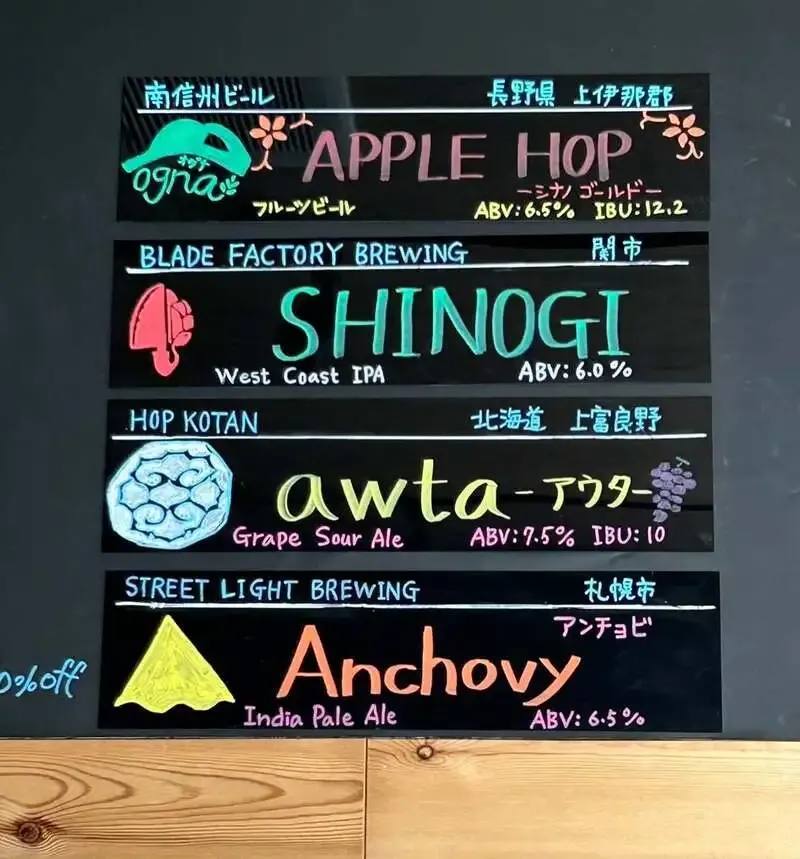 南信州ビール 長野県 上伊那郡
オグナ
ogna
APPLE HOP
ーシナノ ゴールドー
フルーツビール ABV:6.5% IBU:12.2
BLADE FACTORY BREWING 関市
SHINOGI
West Coast IPA ABV:6.0%
HOP KOTAN 北海道 上富良野
awta-アウター
Grape Sour Ale ABV:7.5% IBU:10
STREET LIGHT BREWING 札幌市
アンチョビ
Anchovy
India Pale Ale ABV:6.5%
0%off